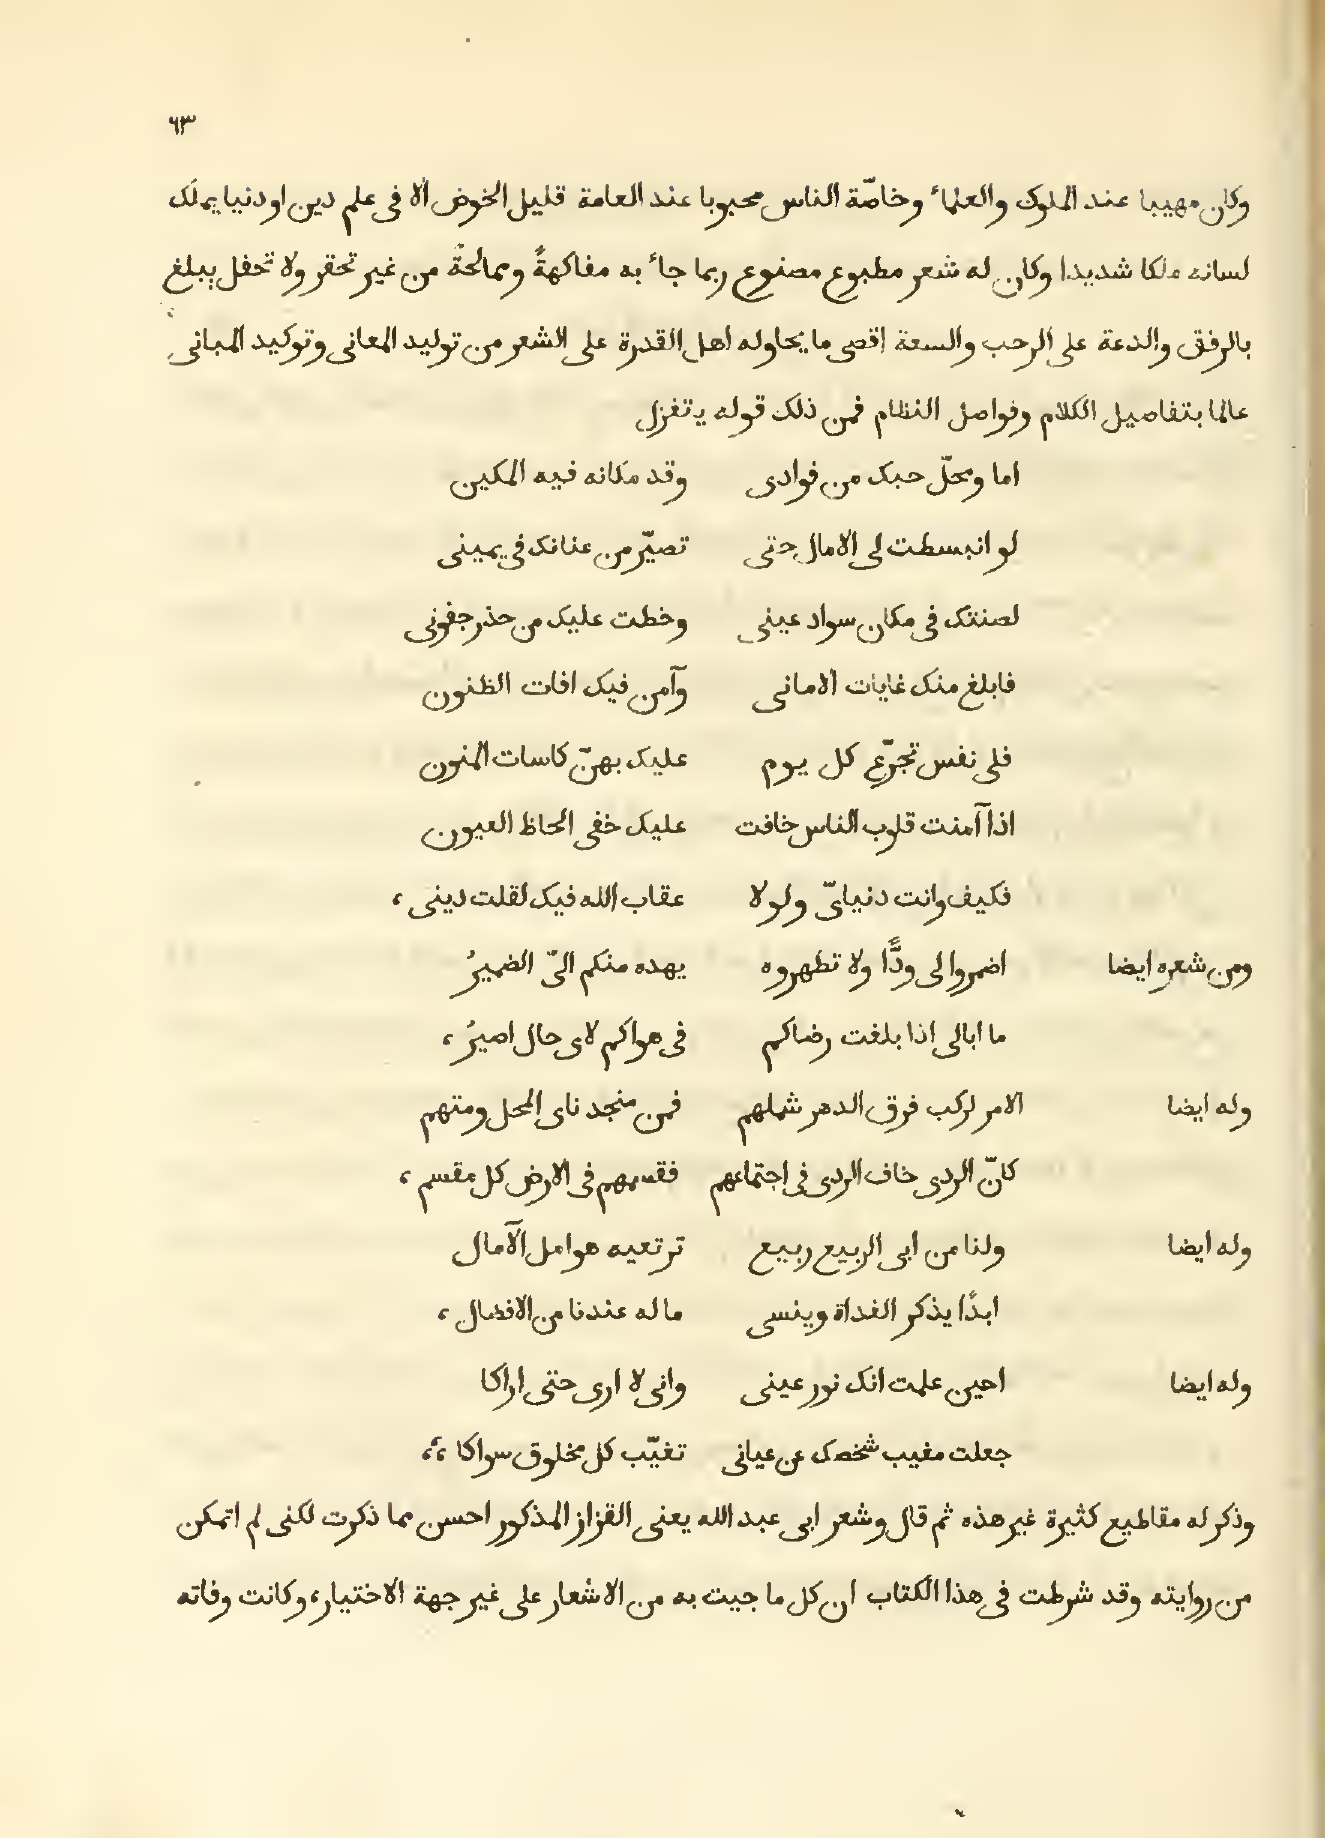 ٦٣
وكان مهيبا عند الملوك والعلماء وخاصّة الناس محبوبا عند العامة قليل الخوض الا فى علم دين او دنيا يملك
لسانه ملكا شديدا وكان له شعر مطبوع مصنوع ربما جاء به مفاكهةً وممالحةً من غير تحقر ولا تحفل يبلغ
بالرفق والدعة على الرحب والسعة اقصى ما يحاوله اهل القدرة على الشعر من توليد المعانى وتوكيد المبانى
عالما بتفاصيل الكلام وفواصل النظام فمن ذلك قوله يتغزل
اما ومحلّ حبك من فوادى وقد مكانه فيه المكين
لو انبسطت لى الامال حتى تصيّر من عنانك فى يمينى
لصنتك فى مكان سواد عينى وخطت عليك من حذر جفونى
فابلغ منك غايات الامانى وآمن فيك افات الظنون
فلى نفس تجرّع كل يوم عليك بهنّ كاسات المنون
اذا آمنت قلوب الناس خافت عليك خفى الحاظ العيون
فكيف وانت دنياىّ ولولا عقاب الله فيك لقلت دينى ،
ومن شعره ايضا اضمروا لى ودًّا ولا تظهروه يهده منكم الىّ الضميرُ
ما ابالى اذا بلغت رضاكم فى هواكم لاى حال اصيرُ ،
وله ايضا الا مر لركب فرق الدهر شملهم فمن منجد ناى المحل ومتهم
كانّ الردى خاف الردى فى اجتماعهم فقسمهم فى الارض كل مقسم ،
وله ايضا ولنا من ابى الربيع ربيع ترتعيه هوامل الآمال
ابدًا يذكر الغداة وينسى ما له عندنا من الافضال ،
وله ايضا احين علمت انك نور عينى وانى لا ارى حتى اراكا
جعلت مغيب شخصك عن عيانى تغيّب كل مخلوق سواكا ،،
وذكر له مقاطيع كثيرة غير هذه ثم قال وشعر ابى عبد الله يعنى القزاز المذكور احسن مما ذكرت لكنى لم اتمكن
من روايته وقد شرطت فى هذا الكتاب ان كل ما جيت به من الاشعار على غير جهة الاختيار، وكانت وفاته